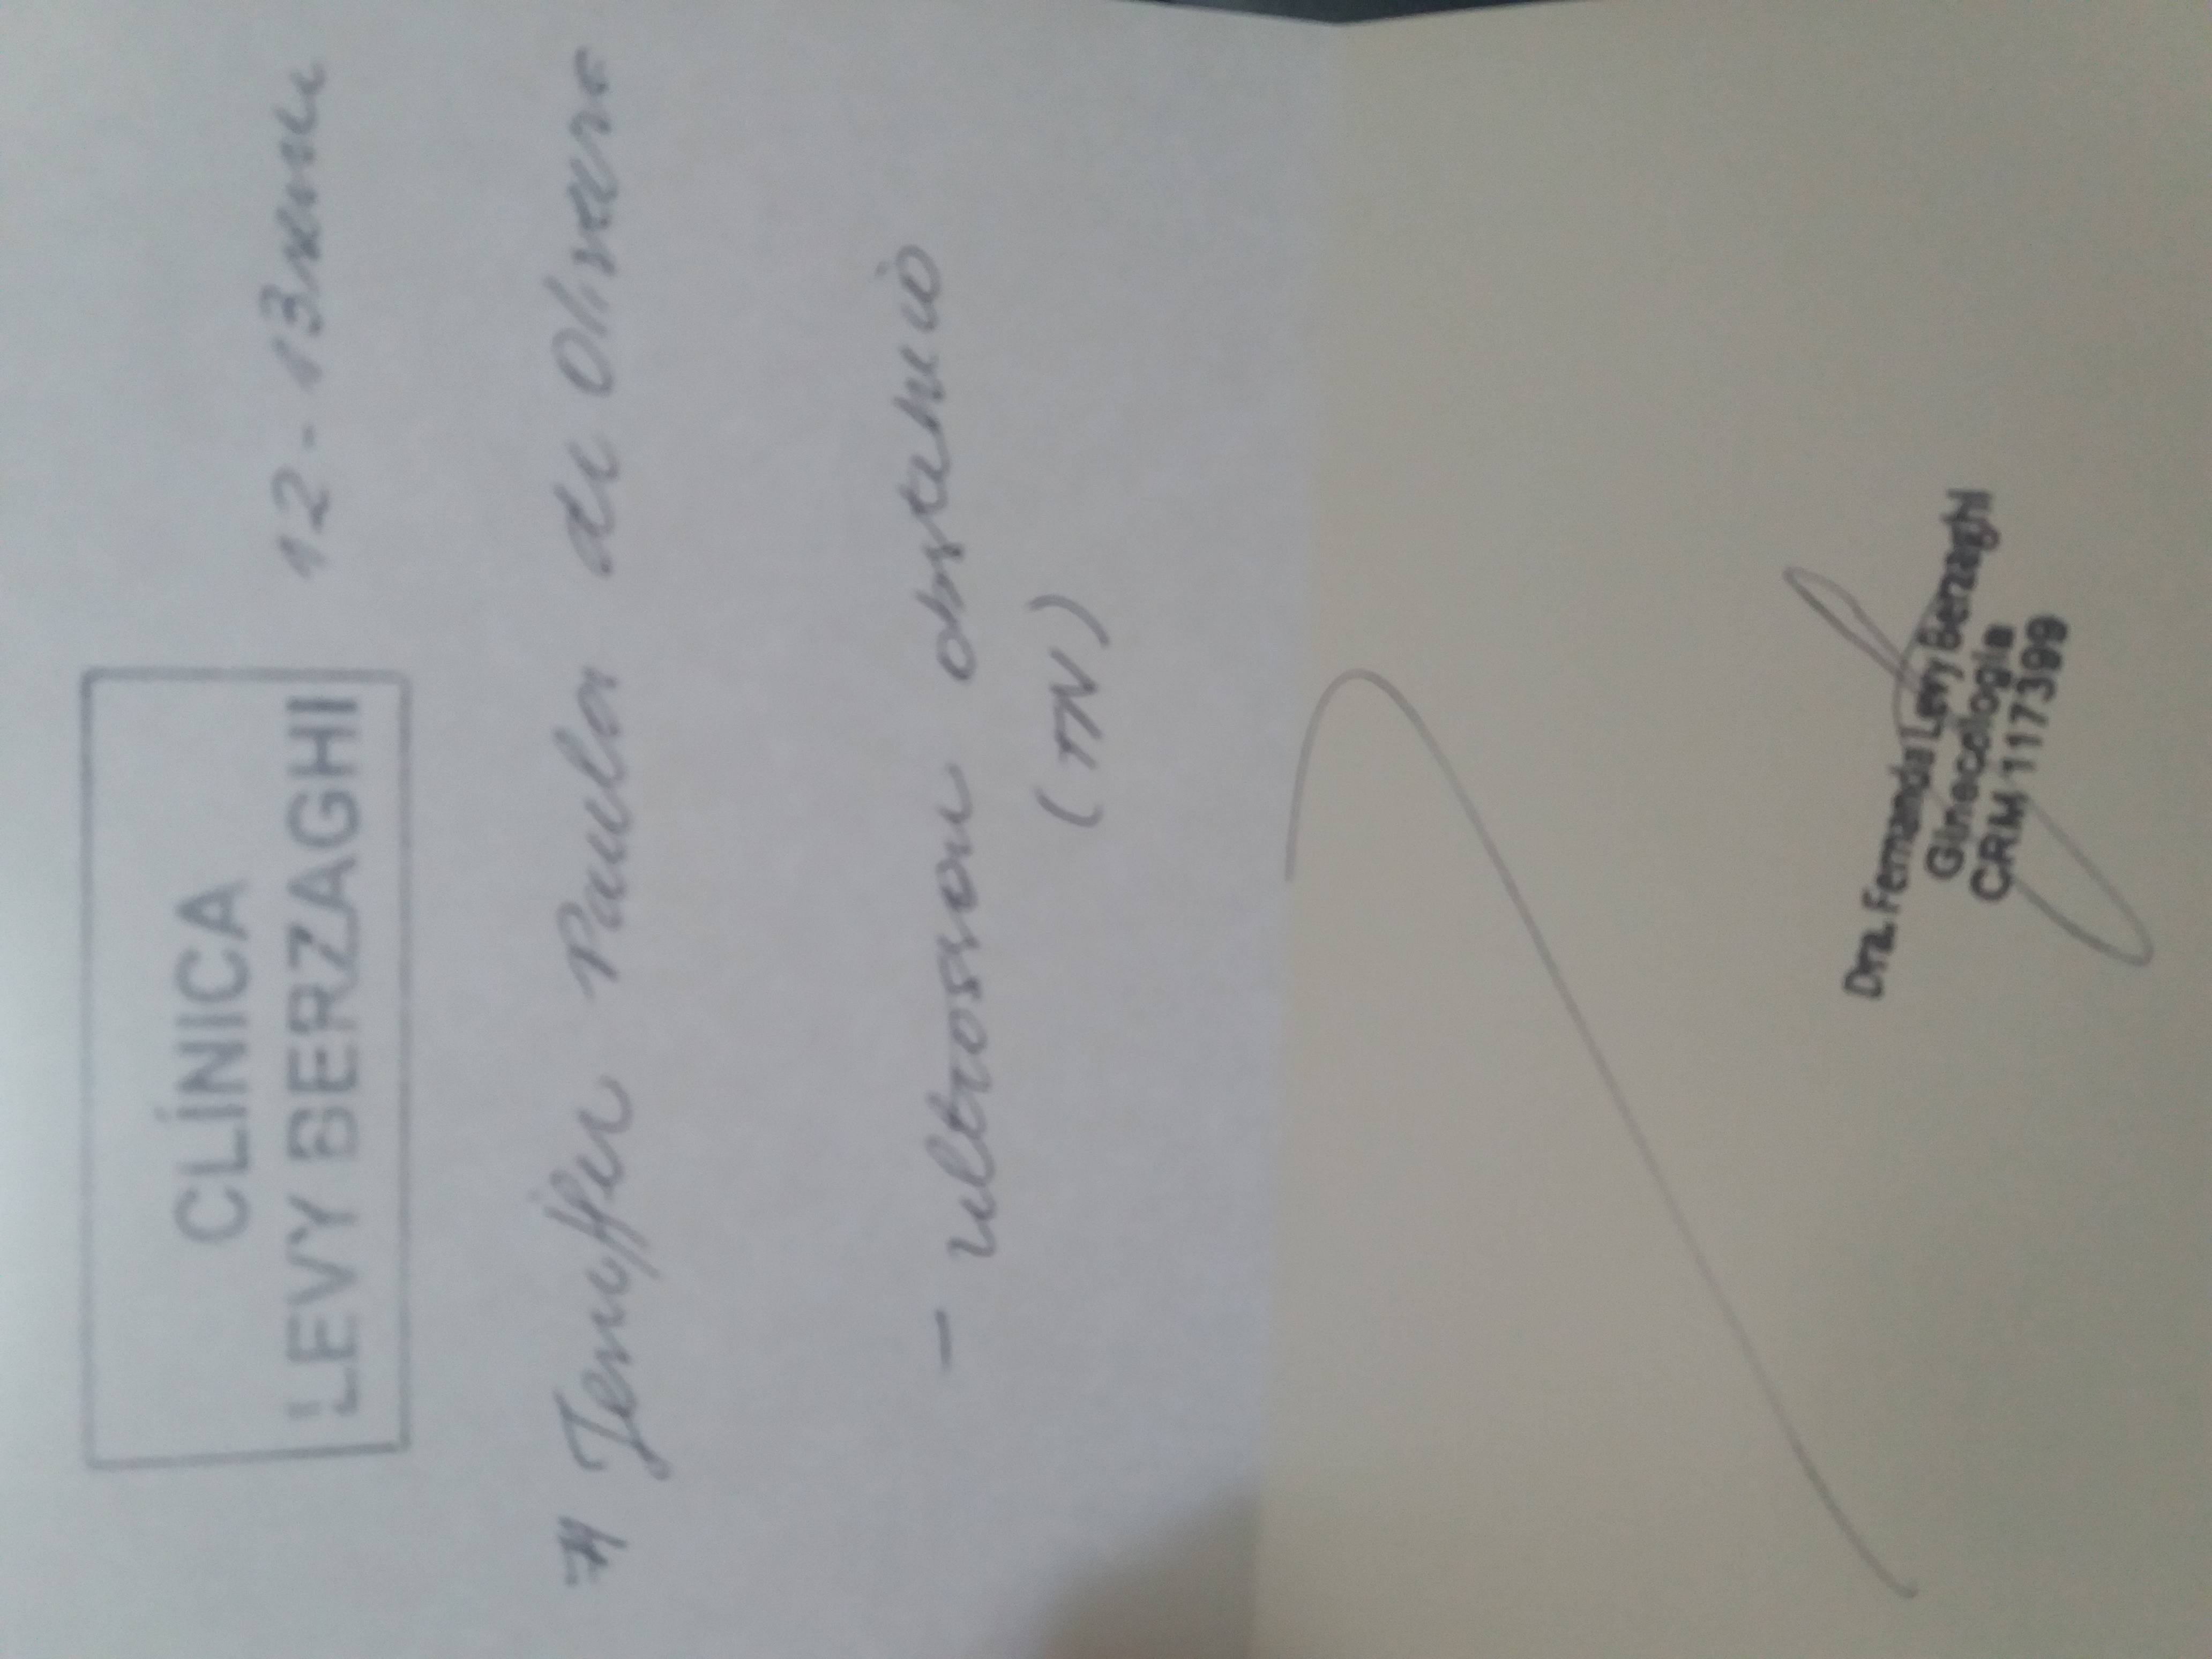 CLÍNICA
LEVY BERZAGHI
12 - 13
Jeniffer Paula de Oliveira
- ultrossom obstetrico
(TN)
Dra. Fernanda Levy Berzaghi
Ginecologia
CRM 117399